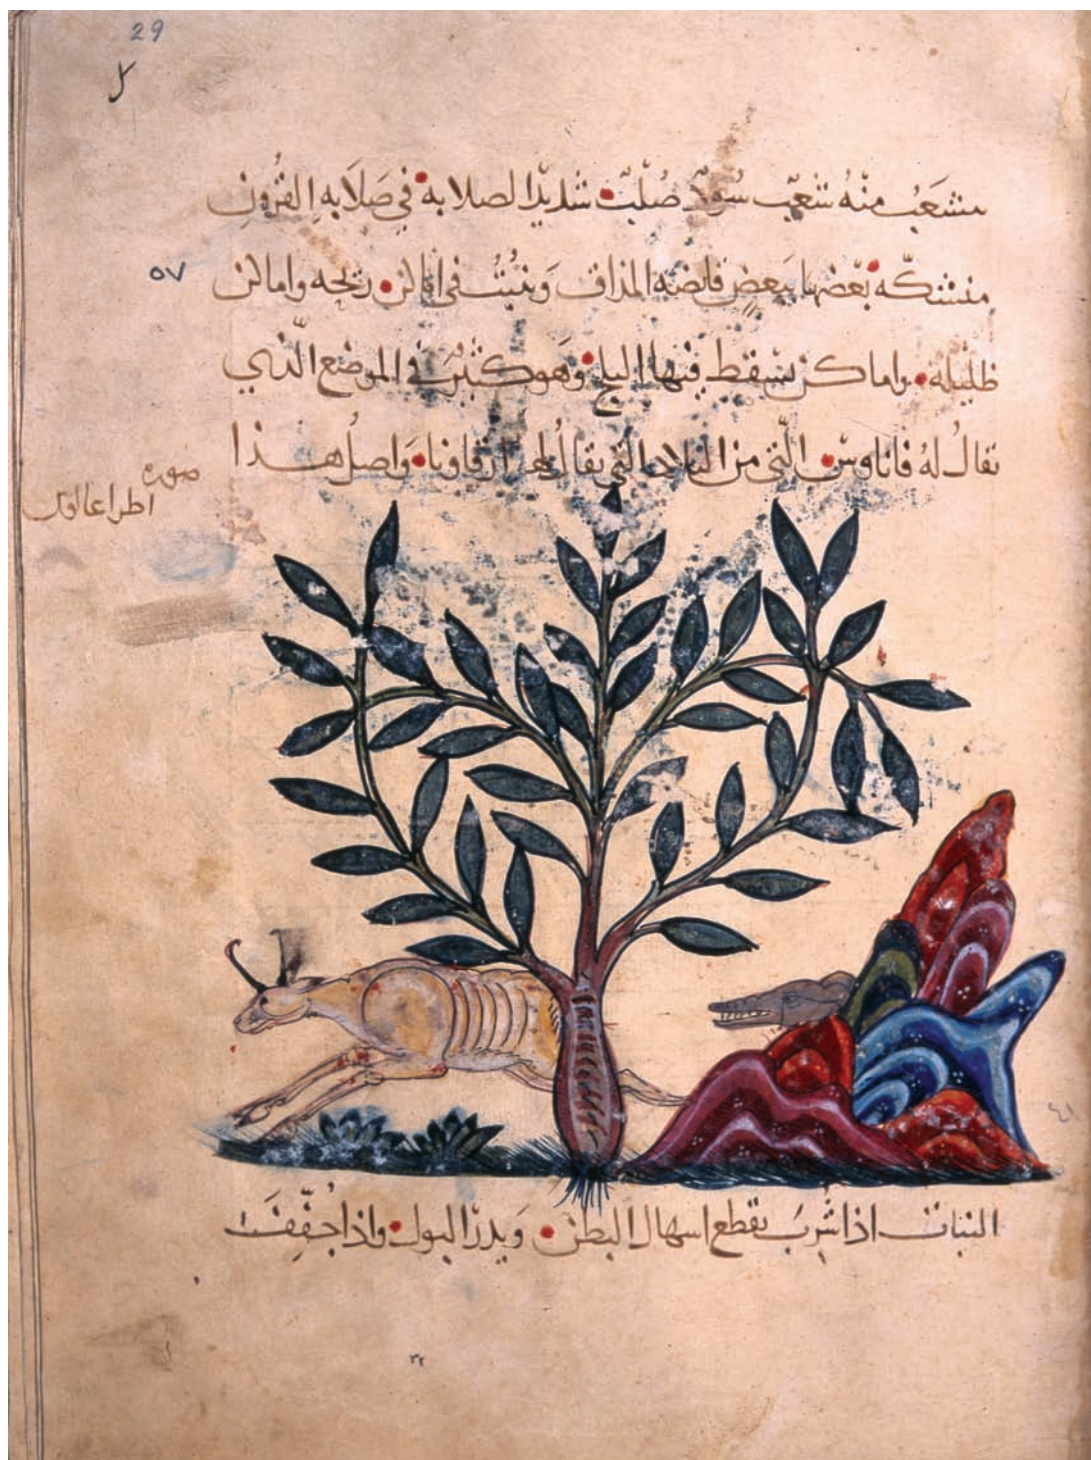 29
متشعب منه شعب سود صلبة شديدة الصلابة في صلابة القرون
٥٧
مشتبكة بعضها ببعض قابضة المذاق وينبت في اماكن ريحه واماكن
ظليله واماكن يسقط فيها الثلج وهو كثير في الموضع الذي
يقال له من البلاد التي يقال لها واصل هذا
صوره
النبات اذا شرب يقطع اسهال البطن ويدر البول واذا جففت
٣٢